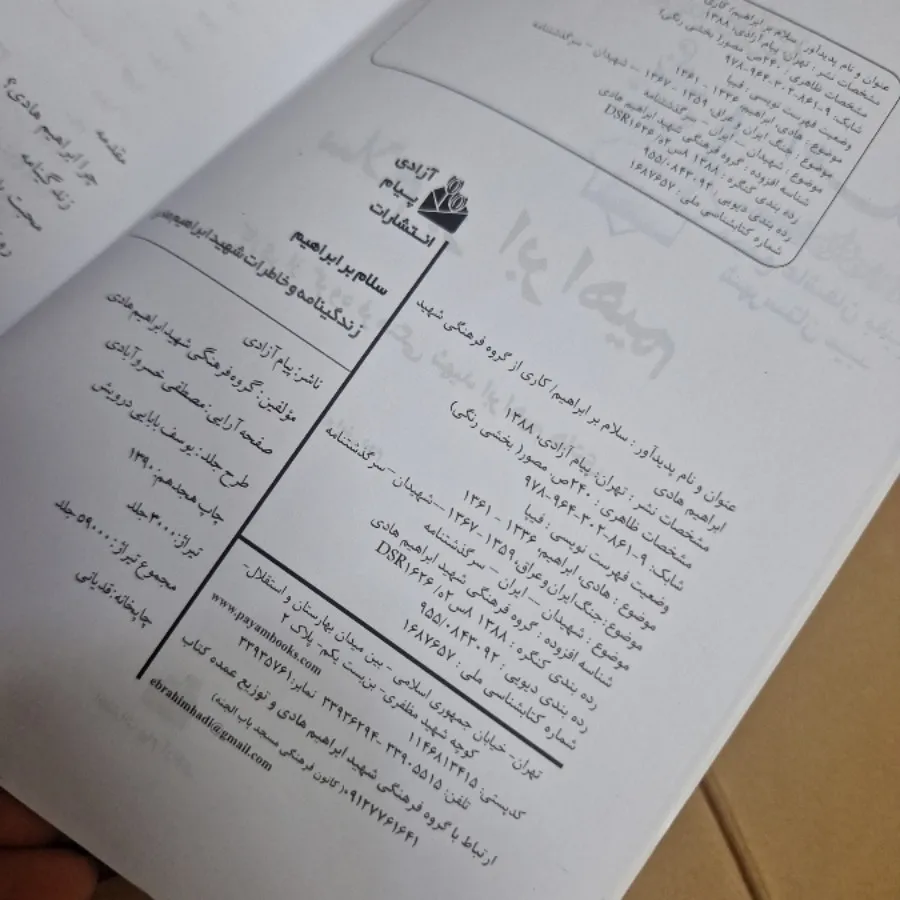 عنوان و نام پدیدآور : سلام بر ابراهیم/ کاری
مشخصات نشر : تهران: پیام آزادی، ۱۳۸۸
مشخصات ظاهری : ۲۴۰ص. مصور( بخشی رنگی)
شابک: ۹-۸۶۱-۳۰۲-۹۶۴-۹۷۸
وضعیت فهرست نویسی : فیپا
موضوع : هادی، ابراهیم، ۱۳۳۶ - ۱۳۶۱
موضوع : جنگ ایران و عراق، ۱۳۵۹ - ۱۳۶۷ -- شهیدان -- سرگذشتنامه
موضوع : شهیدان -- ایران - سرگذشتنامه
شناسه افزوده : گروه فرهنگی شهید ابراهیم هادی
رده بندی کنگره : ۱۳۸۸ ۸س۵۲ه/ DSR۱۶۲۶
رده بندی دیویی : ۹۵۵/۰۸۴۳۰۹۲
شماره کتابشناسی ملی : ۱۶۸۷۶۵۷
مقدمه
چرا ابراهیم هادی؟
زندگینامه
محبت
آزادی
پیام
انتشارات
سلام بر ابراهیم
زندگینامه و خاطرات شهید ابراهیم هادی
ناشر: پیام آزادی
مؤلفین: گروه فرهنگی شهید ابراهیم هادی
صفحه آرایی: مصطفی خسروآبادی
طرح جلد: یوسف بابایی درویش
چاپ هجدهم: ۱۳۹۰
تیراژ: ۳۰۰۰ جلد
مجموع تیراژ: ۵۹۰۰۰ جلد
چاپخانه: قدیانی
عنوان و نام پدیدآور : سلام بر ابراهیم/ کاری از گروه فرهنگی شهید
ابراهیم هادی
مشخصات نشر : تهران: پیام آزادی، ۱۳۸۸
مشخصات ظاهری : ۲۴۰ص. مصور( بخشی رنگی)
شابک: ۹-۸۶۱-۳۰۲-۹۶۴-۹۷۸
وضعیت فهرست نویسی : فیپا
موضوع : هادی، ابراهیم، ۱۳۳۶ - ۱۳۶۱
موضوع: جنگ ایران و عراق، ۱۳۵۹- ۱۳۶۷ -- شهیدان -- سرگذشتنامه
موضوع : شهیدان -- ایران - سرگذشتنامه
شناسه افزوده : گروه فرهنگی شهید ابراهیم هادی
رده بندی کنگره : ۱۳۸۸ ۸س۵۲ه/ DSR۱۶۲۶
رده بندی دیویی : ۹۵۵/۰۸۴۳۰۹۲
شماره کتابشناسی ملی : ۱۶۸۷۶۵۷
تهران- خیابان جمهوری اسلامی - بین میدان بهارستان و استقلال-
کوچه شهید مظفری- بن‌بست یکم- پلاک ۲
کدپستی: ۱۱۴۶۸۱۳۴۱۵ www.payambooks.com
تلفن: ۳۳۹۰۵۵۱۵ -۳۳۹۳۶۲۹۴ نمابر: ۳۳۹۳۵۷۶۱
ارتباط با گروه فرهنگی شهید ابراهیم هادی و توزیع عمده کتاب
۰۹۱۲۷۷۶۱۶۴۱ (کانون فرهنگی مسجد باب الجنه)
ebrahimhadi@gmail.com